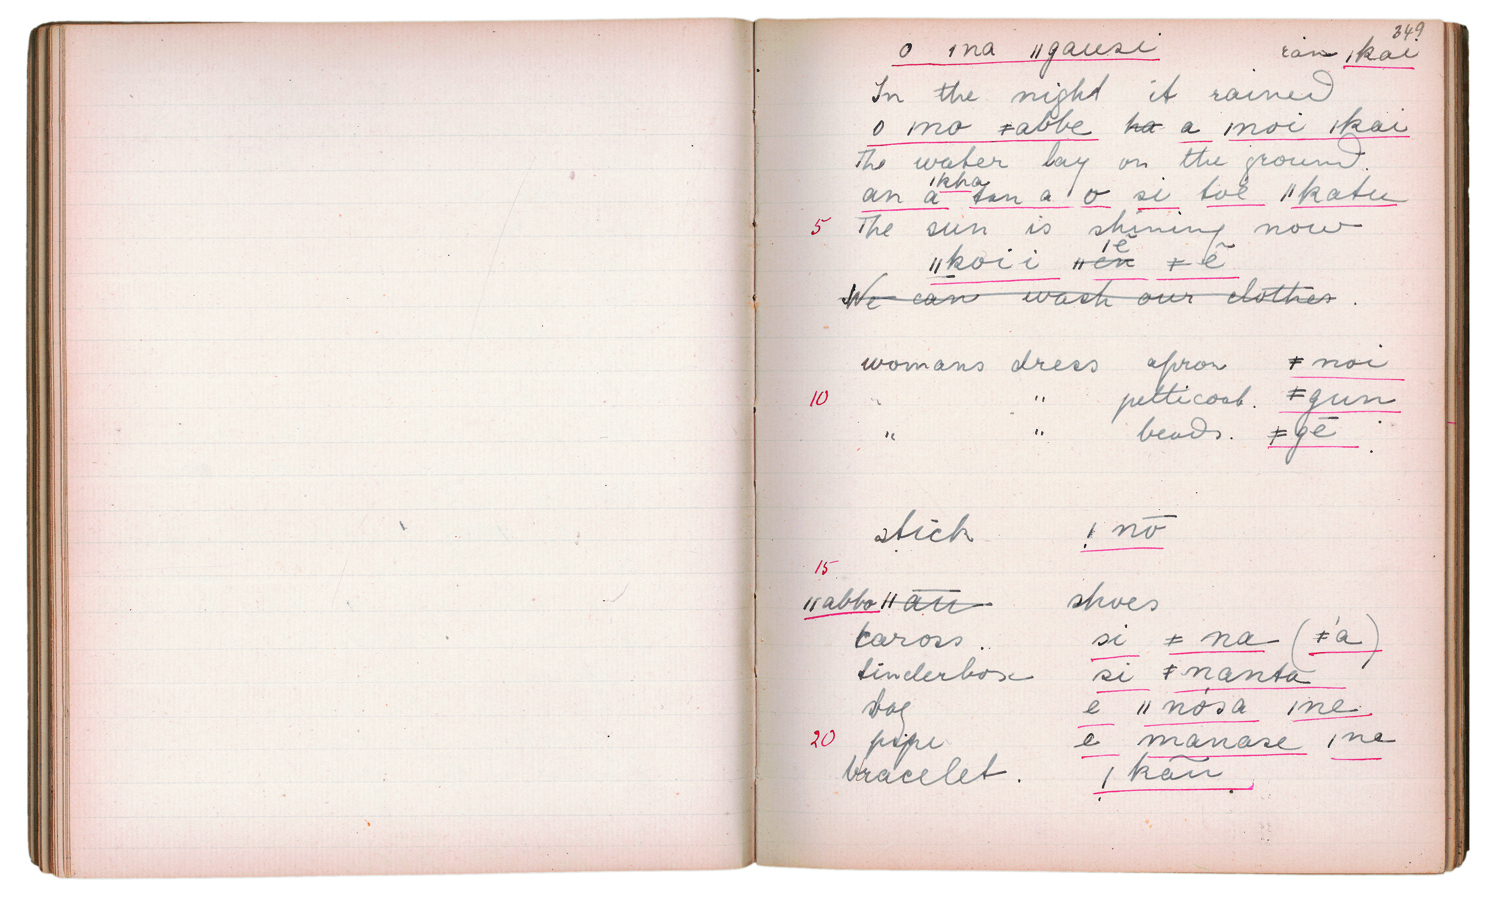 349
o ǀna ǁgausi rain ǀkai
In the night it rained
o ǀno ǂabbe ha a ǀnoi ǀkai
The water lay on the ground.
an a ǀkha tan a o si toë ǁkatu
5 The sun is shining now
ǁkoii ǁen ǀē ǂ ẽ
We can wash our clothes.
womans dress apron ǂnoi
10 " " petticoat. ǂgun
" " beads. ǂgē
stick ǃnō
15
ǁabbo ǁāu shoes
karoso. si ǂna (ǂ'a)
tinderbox si ǂnanta
bag e ǁnósa ǀne
20 pipe e manase ǀne
bracelet. ǃkāu